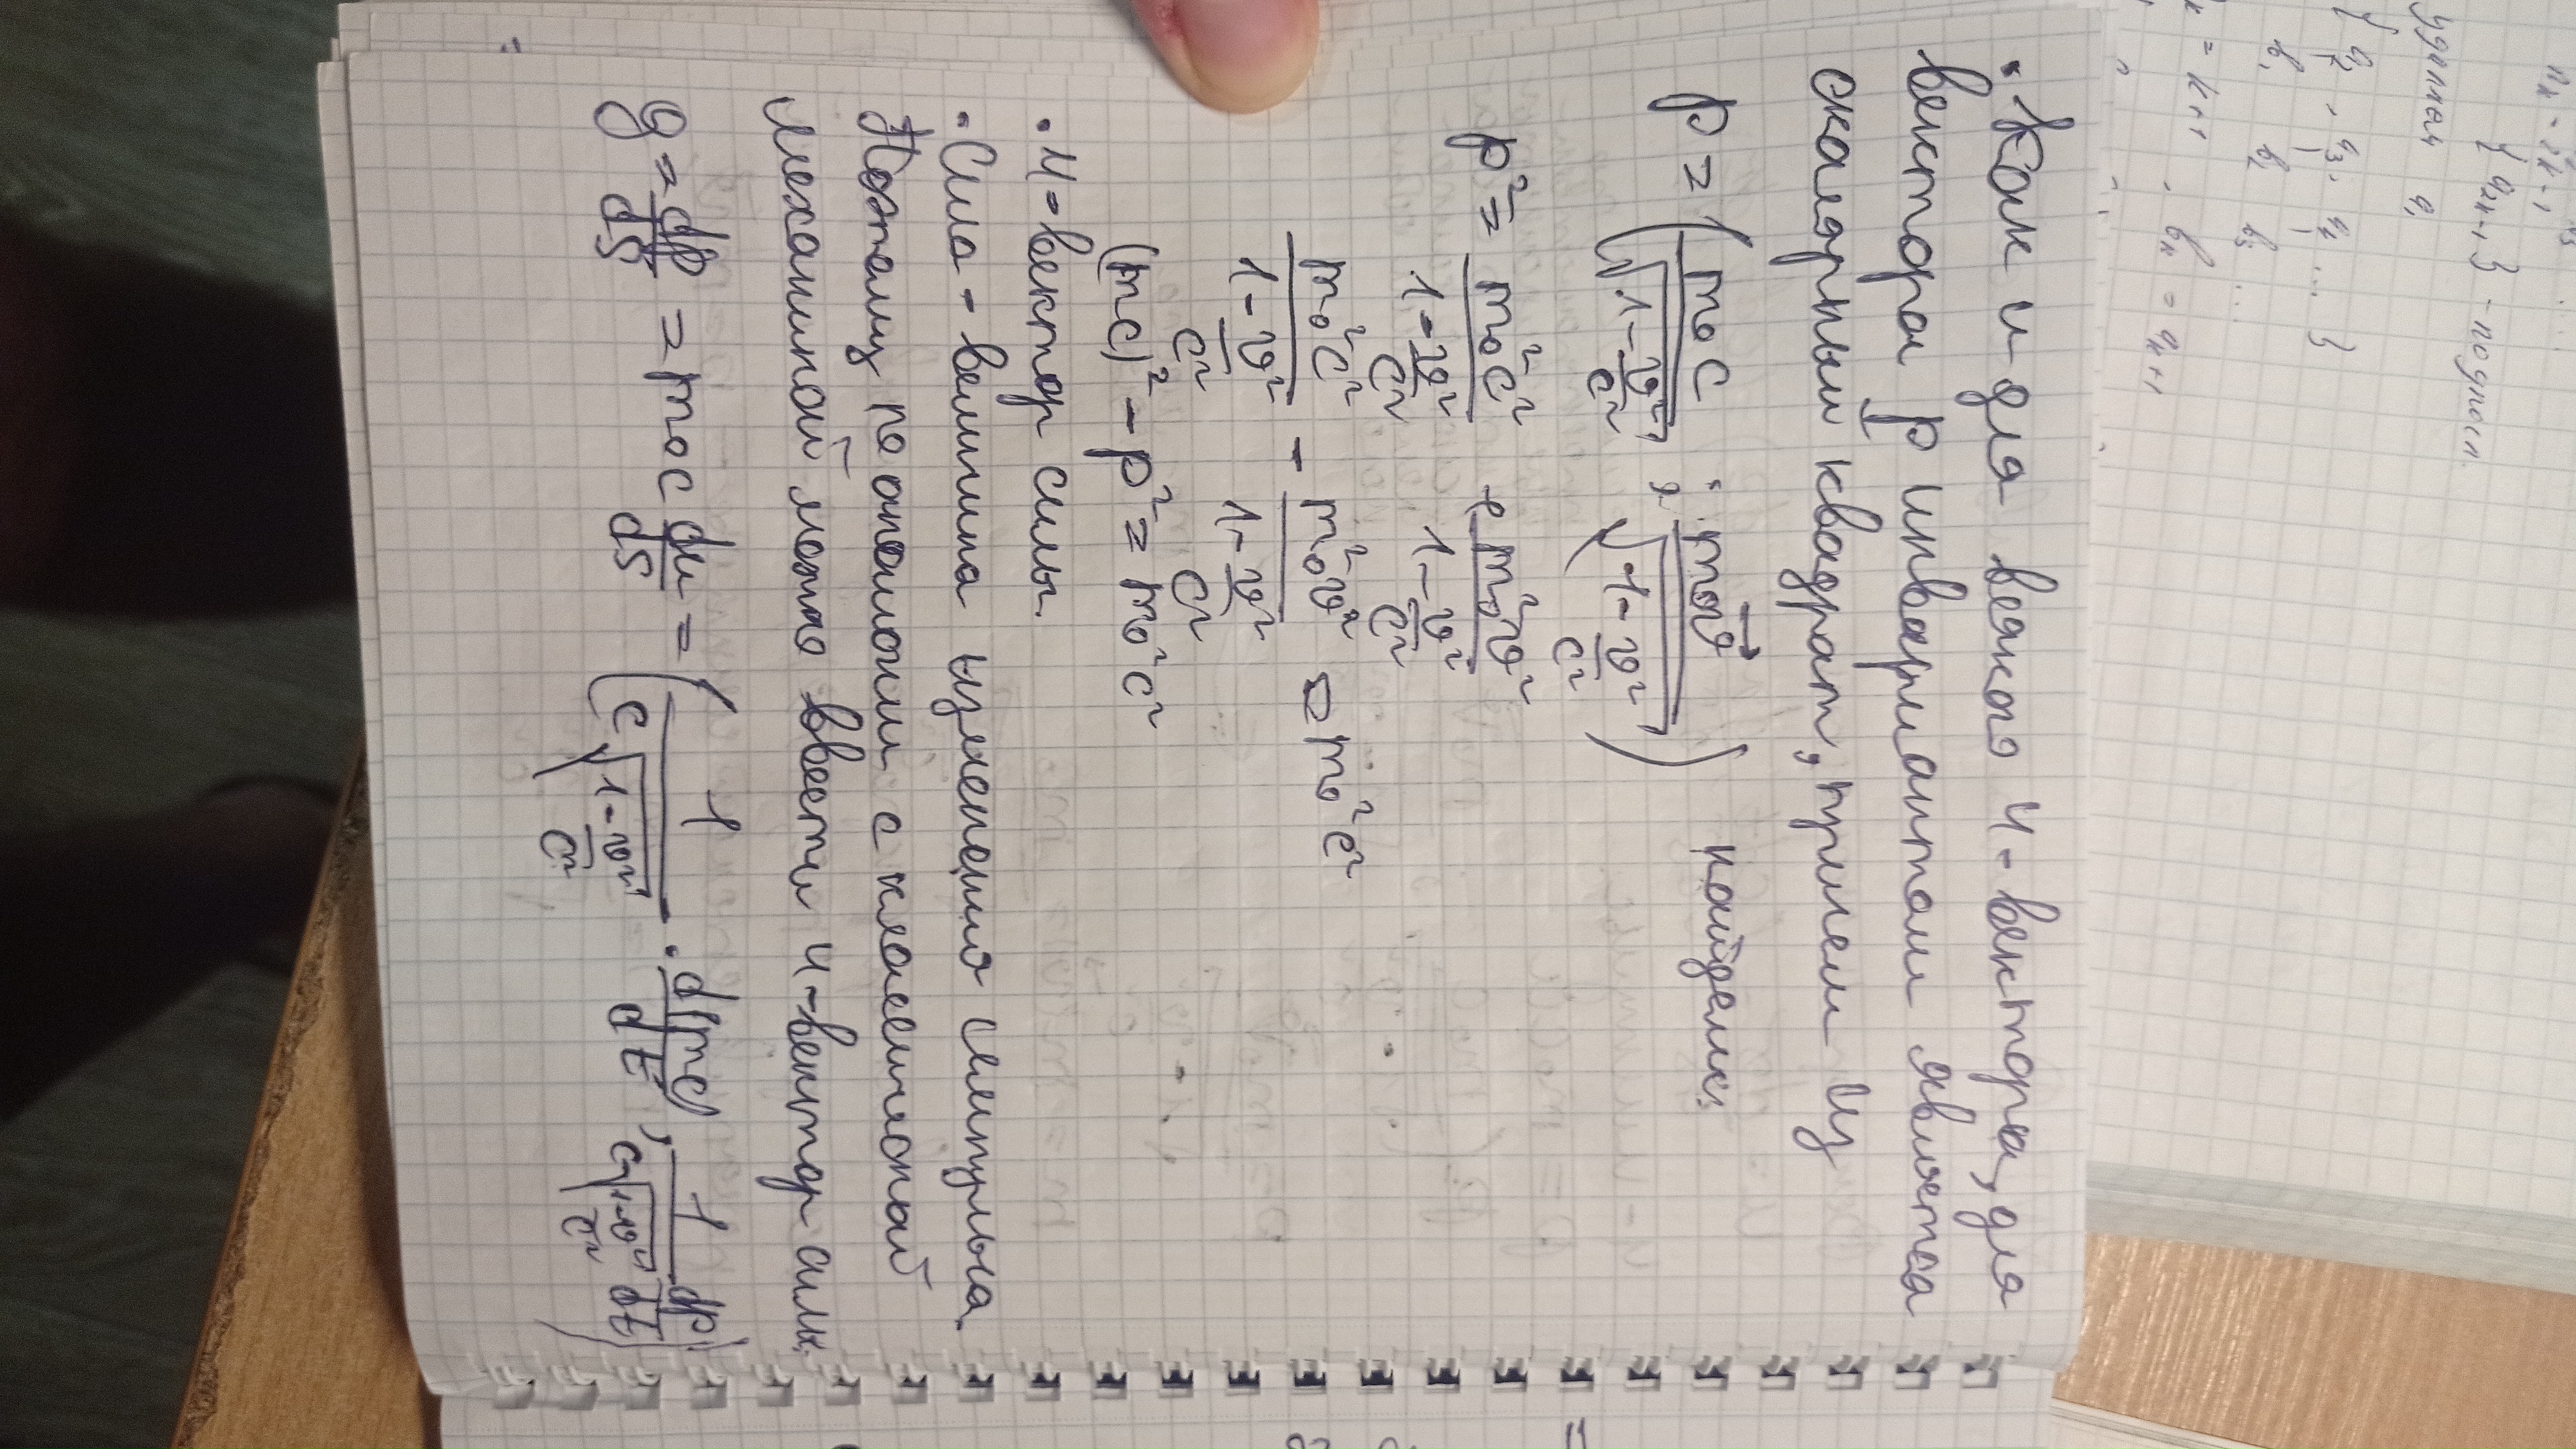 • Как и для всякого 4-вектора, для
вектора p инвариантом является
скалярный квадрат, причем из
p = (m₀c / √(1 - v²/c²) ; m₀v⃗ / √(1 - v²/c²)) найдем:
p² = m₀²c² / (1 - v²/c²) - m₀²v² / (1 - v²/c²)
m₀²c² / (1 - v²/c²) - m₀²v² / (1 - v²/c²) = m₀²c²
(mc)² - p² = m₀²c²
• 4-вектор силы.
• Сила - величина изменению импульса.
Поэтому по аналогии с классической
механикой можно ввести 4-вектор силы:
g = dp/dS = m₀c du/dS = (1 / (c√(1 - v²/c²)) · d(mc)/dt, 1 / (c√(1 - v²/c²)) dp/dt)
удалили a₁ {aₖ₊₁} - подпосл.
{a₂, a₃, a₄ ... }
b₁ b₂ b₃ ...
= k+1, bₖ = aₖ₊₁